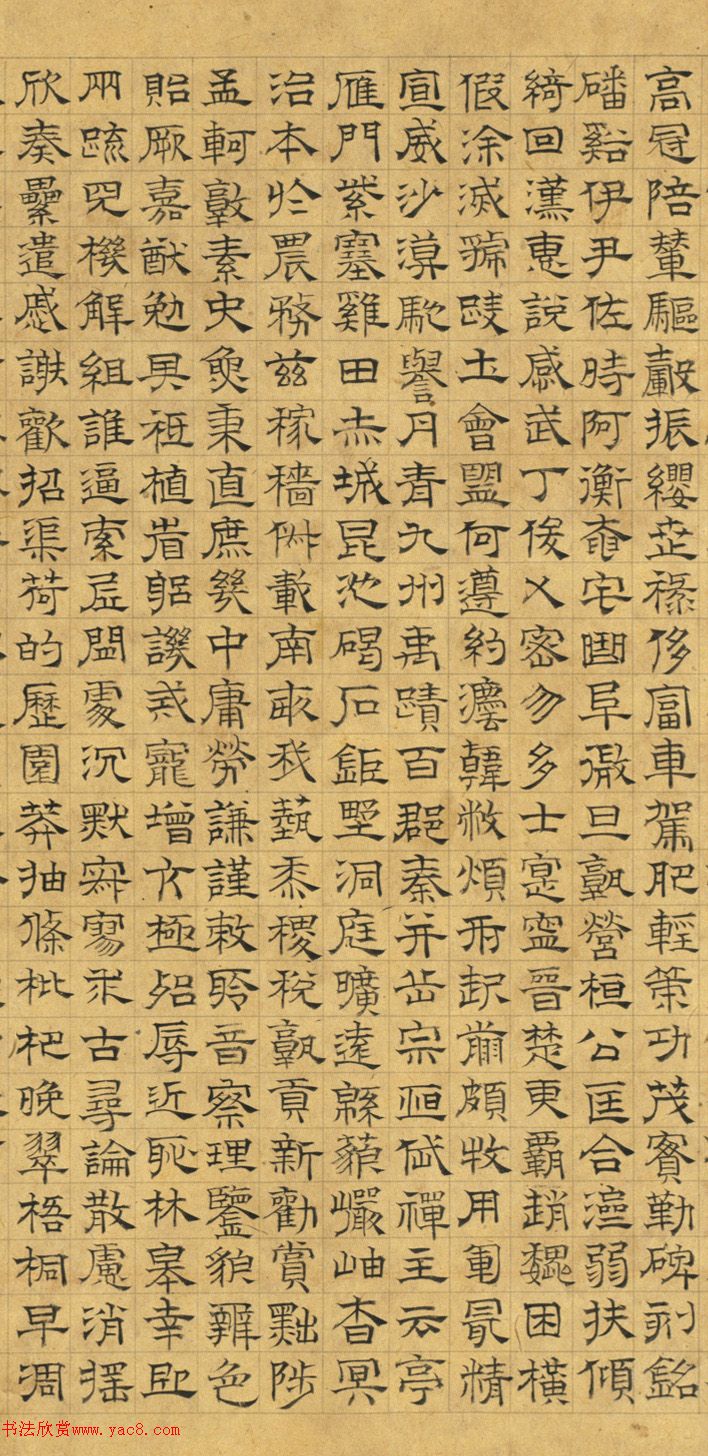 高冠陪輦驅轂振纓世祿侈富車駕肥輕策功茂實勤碑刻銘
磻谿伊尹佐時阿衡奄宅曲阜微旦孰營桓公匡合濟弱扶傾
綺回漢惠說感武丁俊乂密勿多士寔寧晉楚更霸趙魏困橫
假涂滅虢踐土會盟何遵約灋韓弊煩刑起翦頗牧用軍最精
宣威沙漠馳譽丹青九州禹蹟百郡秦并岳宗恆岱禪主云亭
雁門紫塞雞田赤城昆池碣石鉅野洞庭曠遠緜邈巖岫杳冥
治本於農務茲稼穡俶載南畝我藝黍稷稅孰貢新勸賞黜陟
孟軻敦素史魚秉直庶幾中庸勞謙謹敕聆音察理鑒貌辨色
貽厥嘉猷勉其祗植省躬譏誡寵增亢極殆辱近恥林皋幸即
兩疏見機解組誰逼索居閒處沉默寂寥求古尋論散慮消搖
欣奏纍遣慼謝歡招渠荷的歷園莽抽條枇杷晚翠梧桐早凋
书法欣赏www.yac8.com